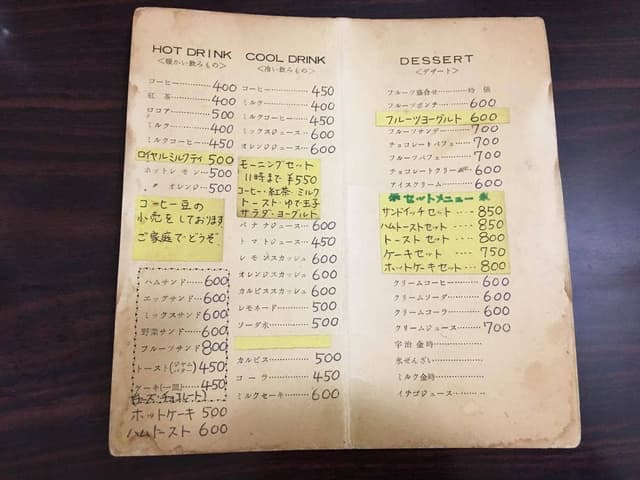 HOT DRINK
<暖かい飲みもの>
コーヒー 400
紅茶 400
ココア 500
ミルク 400
ミルクコーヒー 450
ロイヤルミルクティ 500
ホットレモン 500
〃 オレンジ 500
コーヒー豆の
小売をしております
ご家庭でどうぞ
ハムサンド 600
エッグサンド 600
ミックスサンド 600
野菜サンド 600
フルーツサンド 800
トースト(ジャム バター) 450
ケーキ(一皿) 450
(チーズ・チョコレート)
ホットケーキ 500
ハムトースト 600
COOL DRINK
<冷い飲みもの>
コーヒー 450
ミルク 400
ミルクコーヒー 450
ミックスジュース 600
オレンジジュース 600
モーニングセット
11時まで ¥550
コーヒー・紅茶・ミルク
トースト・ゆで玉子
サラダ・ヨーグルト
バナナジュース 600
トマトジュース 450
レモンスカッシュ 600
オレンジスカッシュ 600
カルピススカッシュ 600
レモネード 500
ソーダ水 500
カルピス 500
コーラ 450
ミルクセーキ 600
DESSERT
<デザート>
フルーツ盛合せ 時価
フルーツポンチ 600
フルーツヨーグルト 600
フルーツサンデー 700
チョコレートパフェ 700
フルーツパフェ 700
チョコレートクリーム 600
アイスクリーム 600
セットメニュー
サンドイッチセット 850
ハムトーストセット 850
トーストセット 800
ケーキセット 750
ホットケーキセット 800
クリームコーヒー 600
クリームソーダ 600
クリームコーラ 600
クリームジュース 700
宇治金時
氷ぜんざい
ミルク金時
イチゴジュース